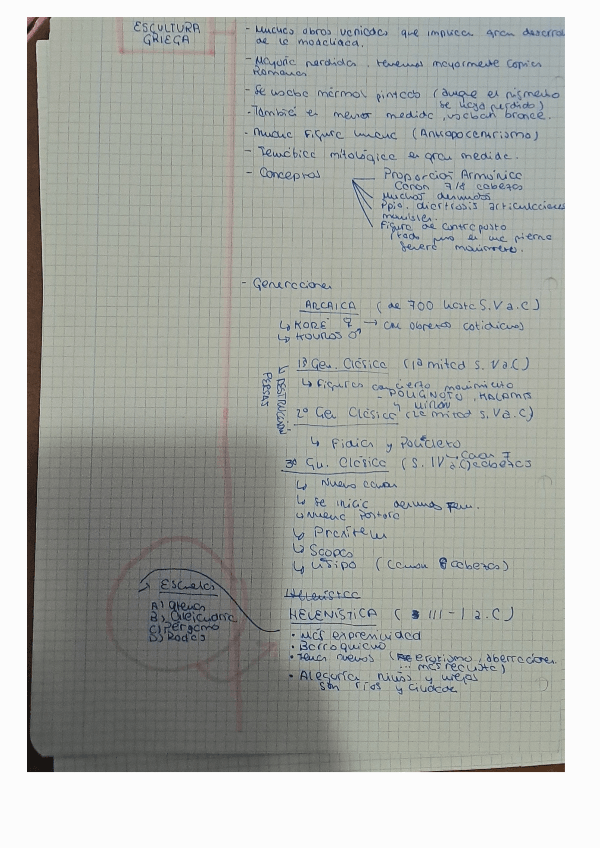 ESCULTURA
GRIEGA
- Muchas obras variadas que implica gran desarrol
de la modalidad.
- Mayoría perdidas, tenemos mayormente copias
Romanas
- Se usaba mármol pintado (aunque el pigmento
se haya perdido)
- También en menor medida, usaban bronce.
- Mucha figura humana (Antropocentrismo)
- Temática mitológica en gran medida.
- Conceptos
Proporción Armónica
Canon 7/8 cabezas
Muchos desnudos
Ppio. diartrosis articulaciones
movisles.
Figura de contraposto
(todo peso en una pierna
genera movimiento.
- Generaciones
ARCAICA (de 700 hasta S.V a.C)
↳ KORÉ ♀ → con objetos cotidianos
↳ KOUROS ♂
↳ DESTRUCCIÓN
PERSAS
1ª Gen. Clásica (1ª mitad S. V a.C)
↳ Figuras con cierto movimiento
- POLIGNOTO, KALAMIS
y MIRÓN
2ª Gen Clásica (2ª mitad S. V a.C)
↳ Fidias y Policleto
↳ Canon 7
cabezas
3ª Gen. Clásica (S. IV a.C)
↳ Nuevo canon
↳ Se inicia desnudo fem.
↳ Nueva postura
↳ Praxiteles
↳ Scopas
↳ Lisipo (Canon 8 cabezas)
Helenística
HELENÍSTICA (S III - I a.C)
• Más expresividad
• Barroquismo
• Temas nuevos (erotismo, aberraciones
... más realista)
• Alegoría, niños y viejos
son ríos y ciudades
→ Escuelas
A) Atenas
B) Alejandría
C) Pérgamo
D) Rodas